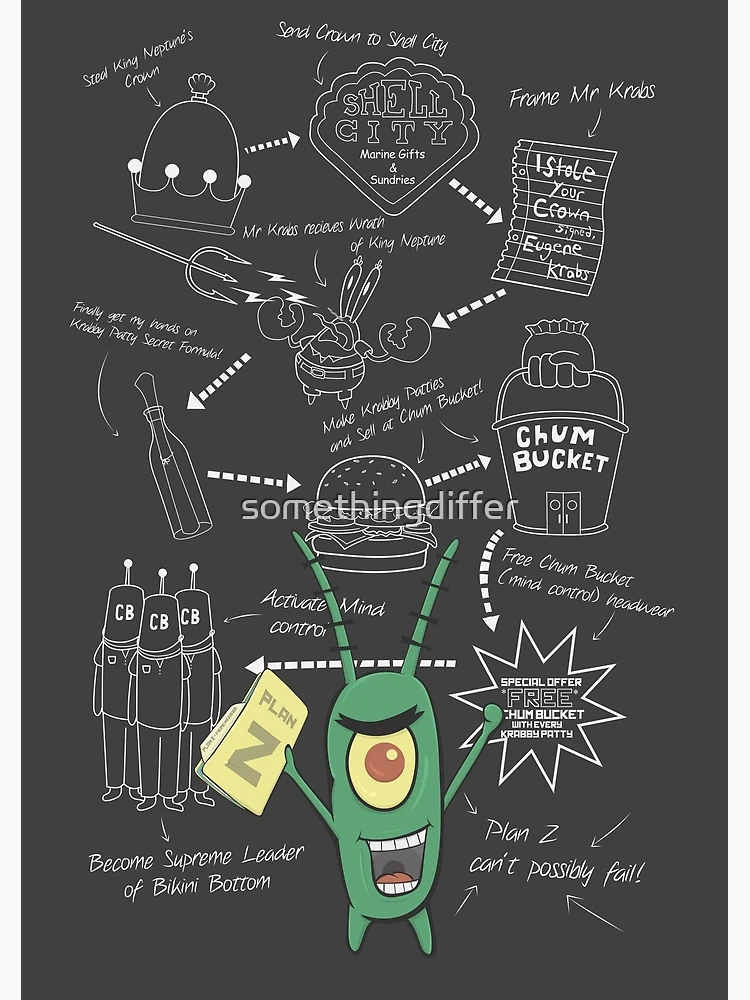 Steal King Neptune's
Crown
Send Crown to Shell City
SHELL
CITY
Marine Gifts
&
Sundries
Frame Mr Krabs
I Stole
Your
Crown
Signed,
Eugene
Krabs
Mr Krabs recieves Wrath
of King Neptune
Finally get my hands on
Krabby Patty Secret Formula!
Make Krabby Patties
and Sell at Chum Bucket!
CHUM
BUCKET
somethingdiffer
Free Chum Bucket
(mind control) headwear
CB
CB
CB
Activate Mind
control
SPECIAL OFFER
*FREE*
CHUM BUCKET
WITH EVERY
KRABBY PATTY
PLAN
Z
Become Supreme Leader
of Bikini Bottom
Plan Z
can't possibly fail!